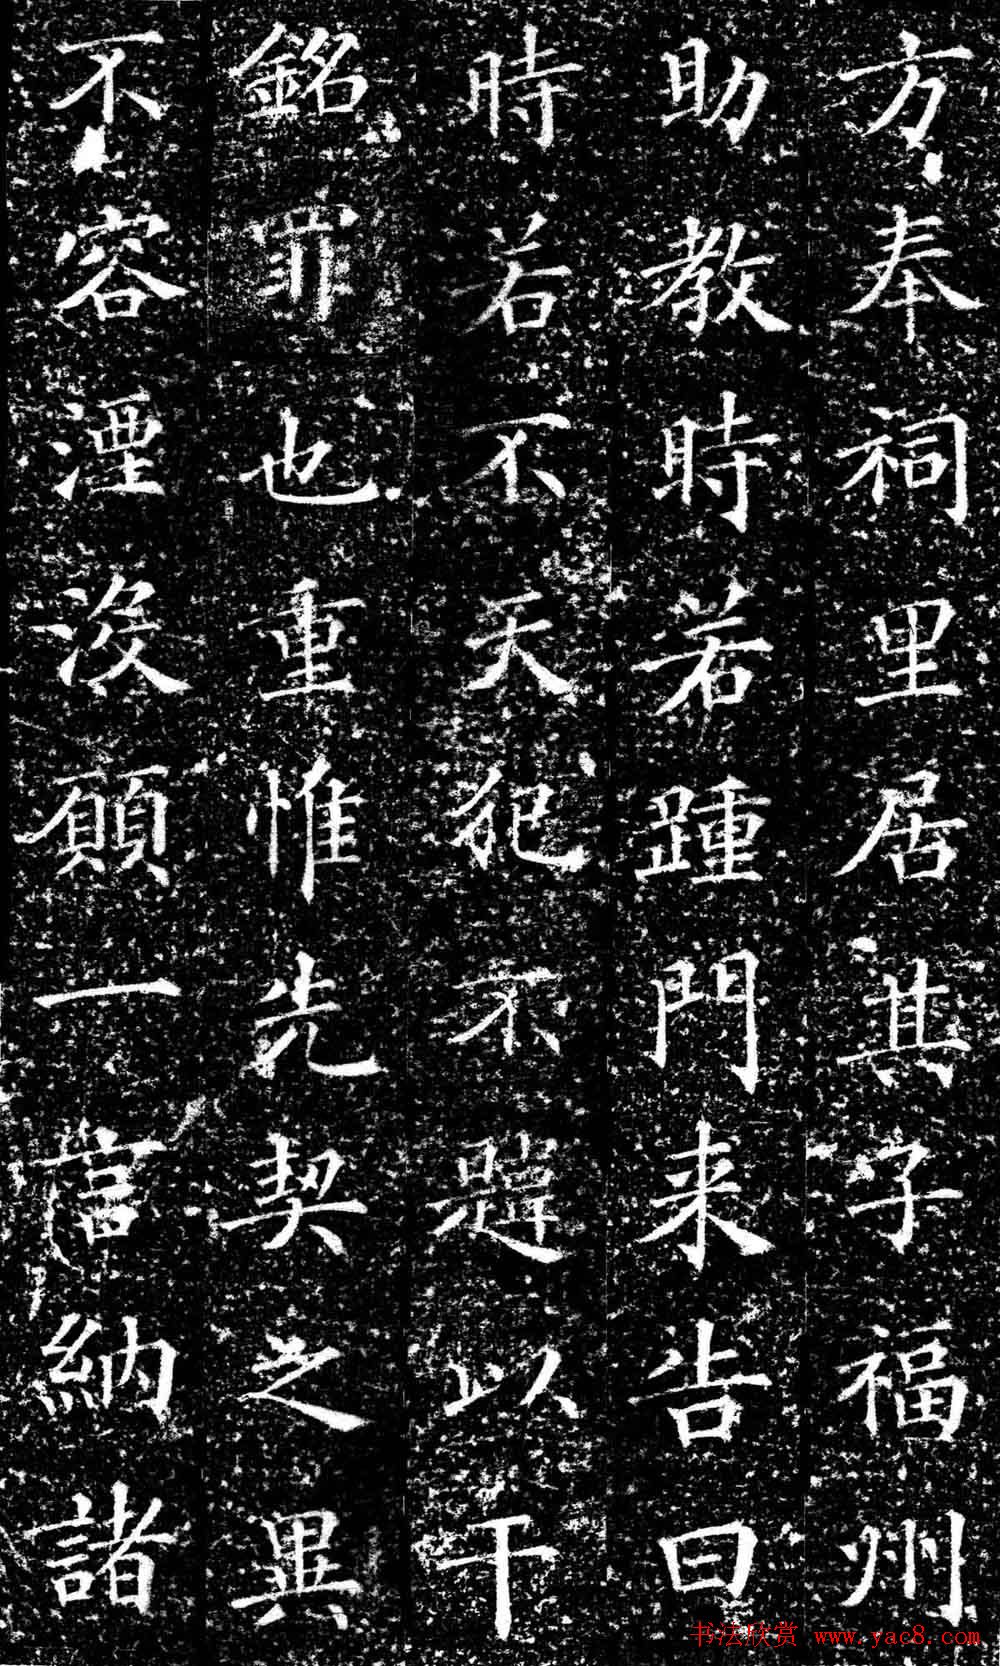 方奉祠里居其子福州
助教時若踵門来告曰
時若不天犯不韙以干
銘罪也重惟先契之異
不容湮没願一納諸
书法欣赏 www.yac8.com